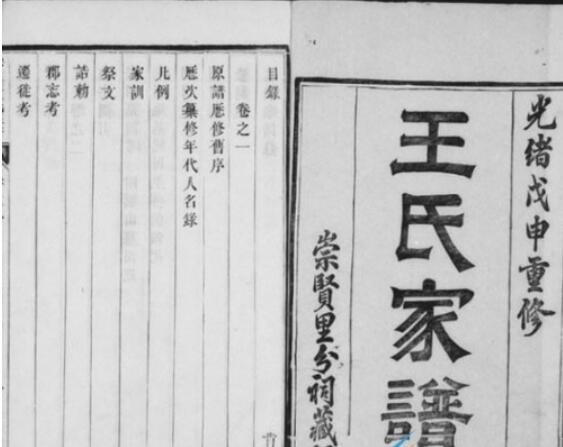 光緒戊申重修
王氏家譜
崇賢里分祠藏
目錄
卷之一
原譜歷修舊序
歷次纂修年代人名錄
凡例
家訓
祭文
誥勅
郡忘考
遷徙考